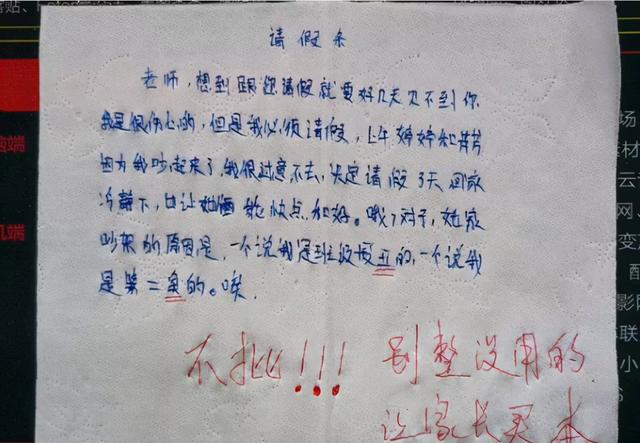 请假条
老师，想到跟您请假就要好几天见不到你
我是很伤心的，但是我必须请假，上午婷婷和芳芳
因为我吵起来了，我很过意不去，决定请假3天回家
冷静下，也让她俩能快点和好。哦，对了，她俩
吵架的原因是，一个说我是班级最丑的，一个说我
是第二丑的。唉，
不批!!! 别整没用的
让家长买本